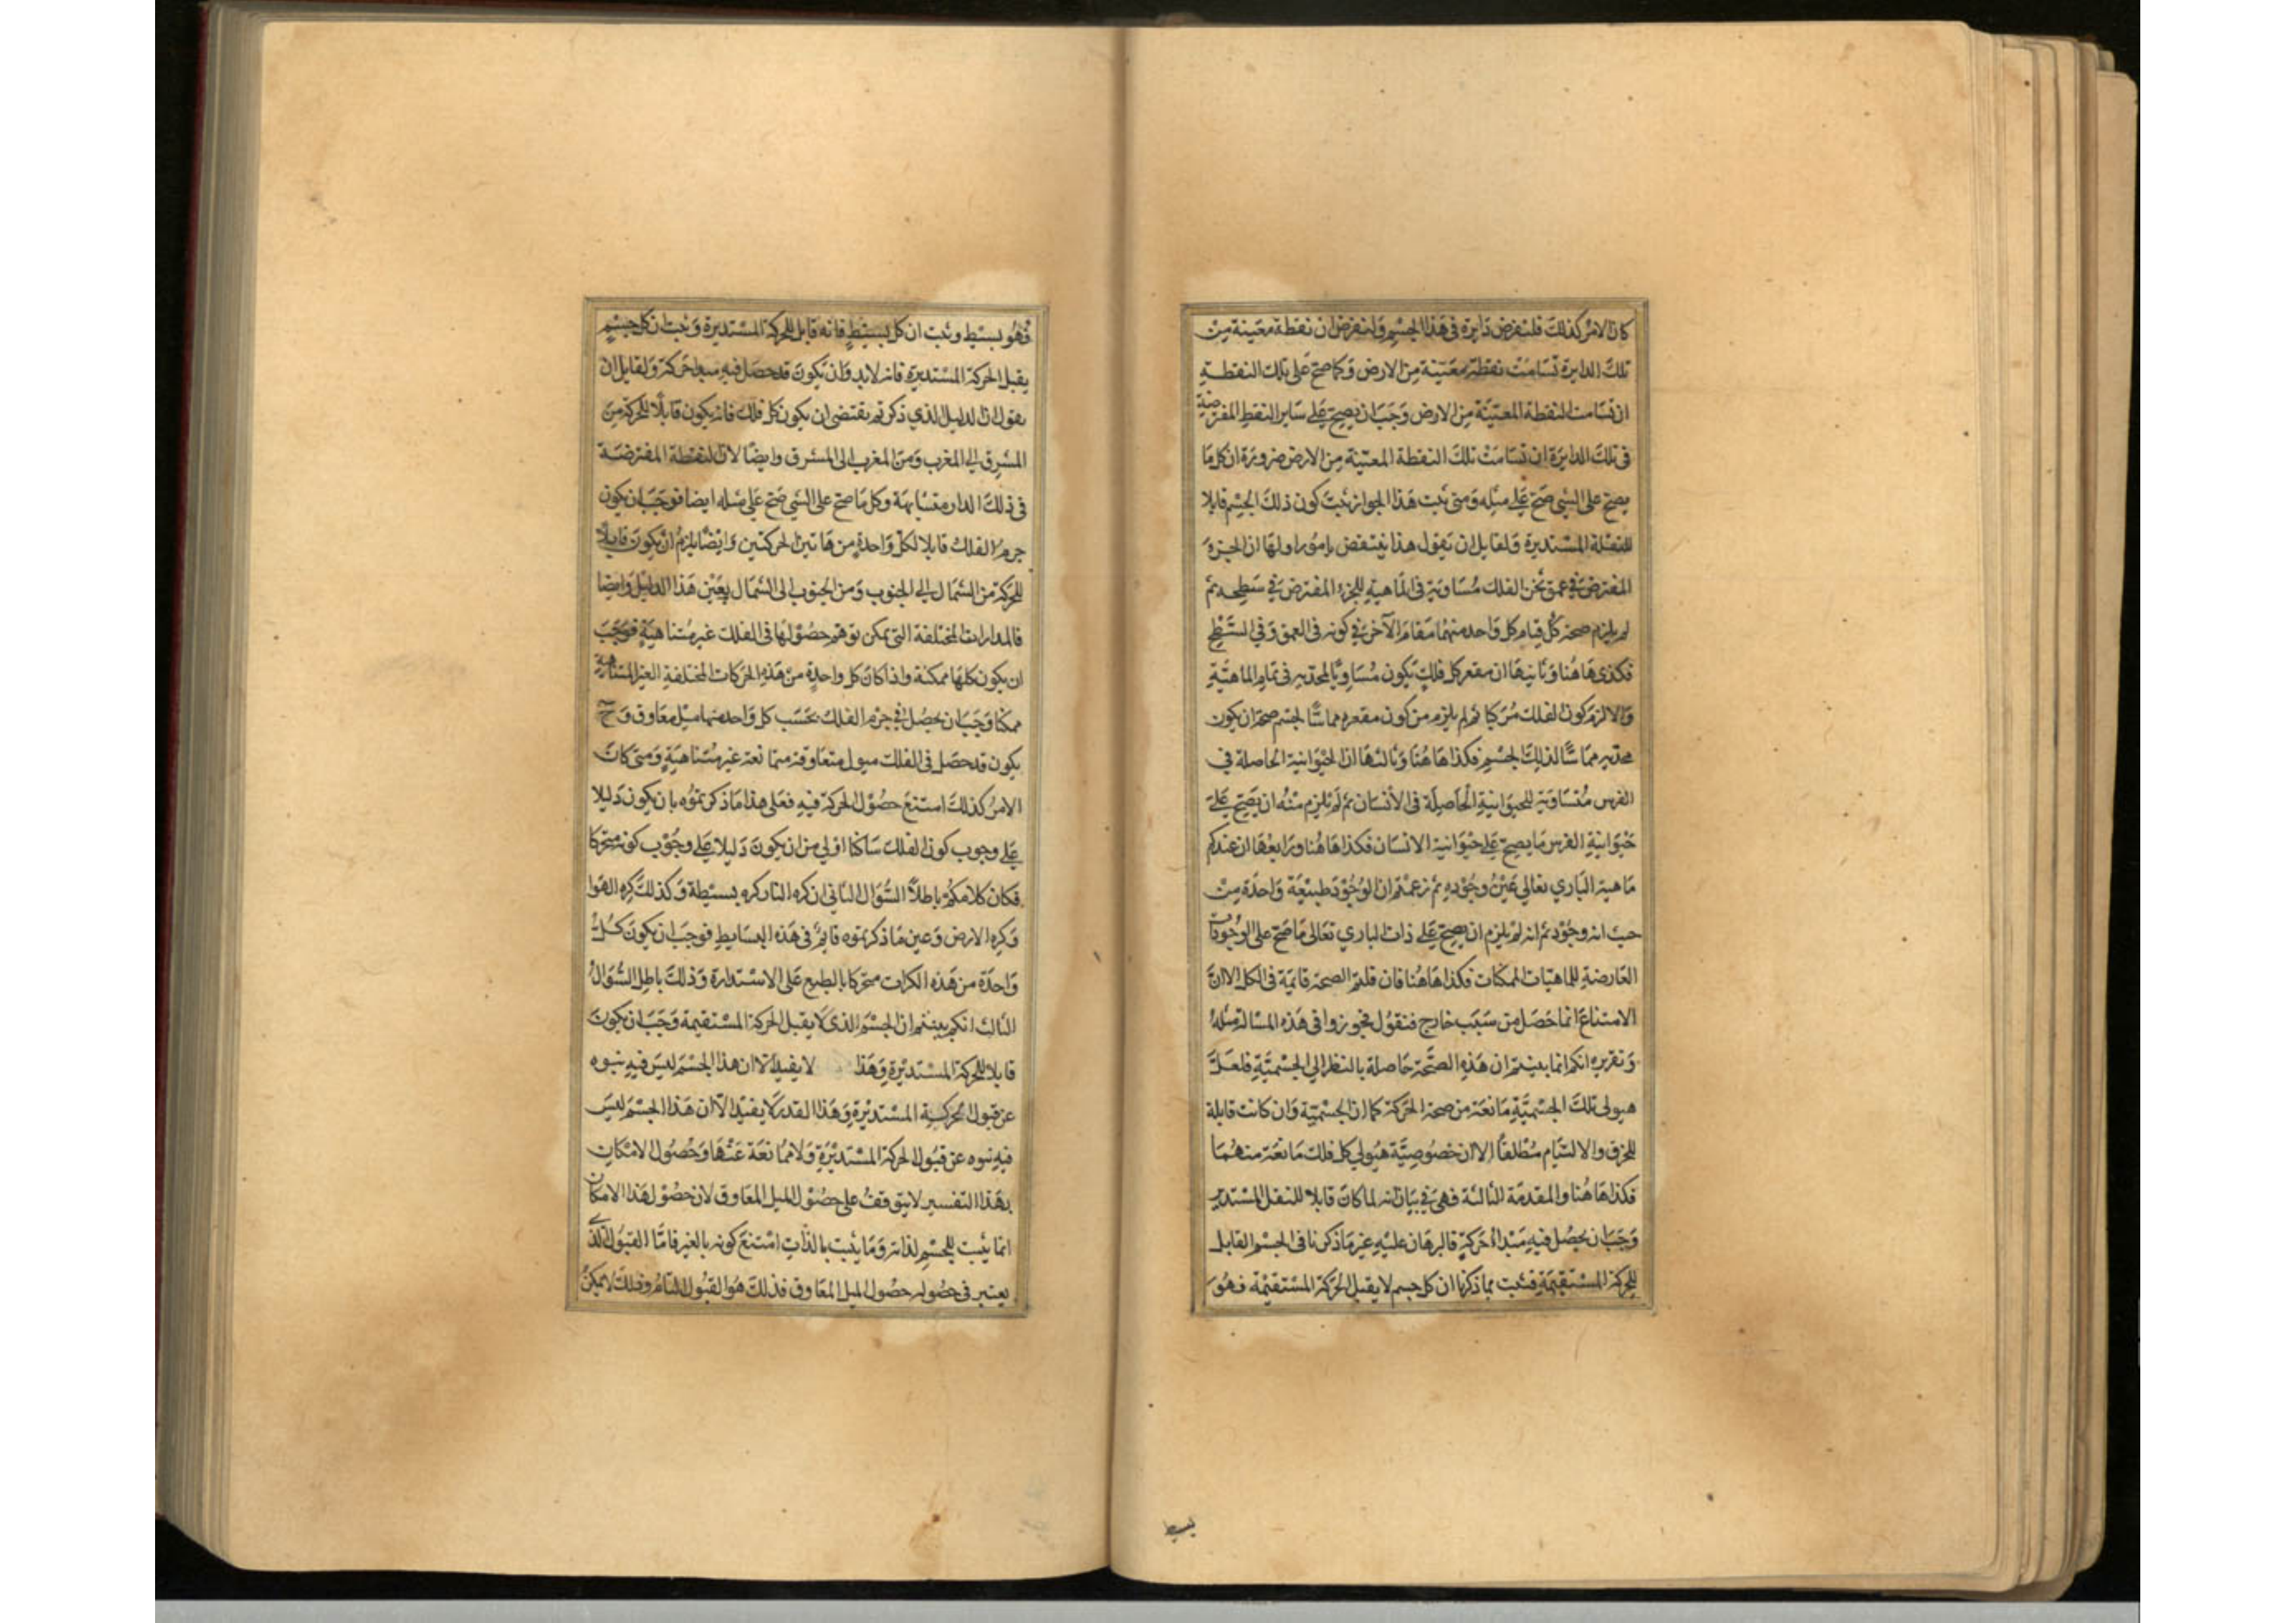 كان الامر كذلك فلنفرض دايرة فى هذا الجسم ولنفرض ان نقطة معينة من
تلك الدايرة تسامت نقطة معينة من الارض وكما صح على تلك النقطة
ان تسامت النقطة المعينة من الارض وجب ان يصح على ساير النقط المفترضة
فى تلك الدايرة ان تسامت تلك النقطة المعينة من الارض ضرورة ان كل ما
يصح على الشى صح على مثله ومتى ثبت هذا الجواز ثبت كون ذلك الجسم قابلا
للنقلة المستديرة ولقايل ان يقول هذا ينتقض بامور اولها ان الجزء
المفترض فى عمق ثخن الفلك مساوية فى الماهية للجزء المفترض فى سطحه ثم
لم يلزم صحة كل قيام كل واحد منهما مقام الآخر فى كونه فى العمق وفى السطح
فكذى هاهنا وثانيها ان مقعر كل فلك يكون مساويا لمحدبه فى تمام الماهية
والا لزم كون الفلك مركبا ثم لم يلزم من كون مقعره مماسا لجسم صحة ان يكون
محدبه مماسا لذلك الجسم فكذا هاهنا وثالثها ان الحيوانية الحاصلة فى
الفرس متساوية للحيوانية الحاصلة فى الانسان ثم لم يلزم منه ان يصح على
حيوانية الفرس ما يصح على حيوانية الانسان فكذا هاهنا ورابعها ان عندكم
ماهية البارى تعالى عين وجوده ثم زعمتم ان الوجود طبيعة واحدة من
حيث انه وجود ثم انه لم يلزم ان يصح على ذات البارى تعالى ما صح على الوجودات
العارضة للماهيات الممكنات فكذا هاهنا فان قلتم الصحة قايمة فى الكل الا ان
الامتناع انما حصل من سبب خارج فنقول فجوزوا فى هذه المسالة مثله
وتقريره انكم انما بينتم ان هذه الصحة حاصلة بالنظر الى الجسمية فلعل
هيولى تلك الجسمية مانعة من صحة الحركة كما ان الجسمية وان كانت قابلة
للخرق والالتيام مطلقا الا ان خصوصية هيولى كل فلك مانعة منهما
فكذا هاهنا والمقدمة الثالثة فهى فى بيان انه لما كان قابلا للنقل المستدير
وجب ان يحصل فيه مبدأ حركة فالبرهان عليه غير ما ذكرنا فى الجسم القابل
للحركة المستقيمة فثبت بما ذكرنا ان كل جسم لا يقبل الحركة المستقيمة فهو
بسيط
فهو بسيط وثبت ان كل بسيط فانه قابل للحركة المستديرة وثبت ان كل جسم
يقبل الحركة المستديرة فانه لابد وان يكون قد حصل فيه مبدا حركة ولقايل ان
يقول ان الدليل الذى ذكرتم يقتضى ان يكون كل فلك فانه يكون قابلا للحركة من
المشرق الى المغرب ومن المغرب الى المشرق وايضا لان النقطة المفترضة
فى ذلك الدار متشابهة وكل ما صح على الشى صح على مثله ايضا فوجب ان يكون
جرم الفلك قابلا لكل واحدة من هاتين الحركتين وايضا يلزم ان يكون قابلا
للحركة من الشمال الى الجنوب ومن الجنوب الى الشمال بعين هذا الدليل وايضا
فالمدارات المختلفة التى يمكن توهم حصولها فى الفلك غير متناهية فوجب
ان يكون كلها ممكنة واذا كان كل واحدة من هذه الحركات المختلفة الغير المتناهية
ممكنا وجب ان يحصل فى جرم الفلك بحسب كل واحد منها ميل معاوق وح
يكون قد حصل فى الفلك ميول متعاوقة متمانعة غير متناهية ومتى كان
الامر كذلك امتنع حصول الحركة فيه فعلى هذا ما ذكرتموه بان يكون دليلا
على وجوب كون الفلك ساكنا اولى من ان يكون دليلا على وجوب كونه متحركا
فكان كلامكم باطلا السؤال الثانى ان كره النار كره بسيطة وكذلك كره الهوا
وكره الارض وعين ما ذكرتموه قايم فى هذه البسايط فوجب ان يكون كل
واحدة من هذه الكرات متحركا بالطبع على الاستدارة وذلك باطل السؤال
الثالث انكم بينتم ان الجسم الذى لا يقبل الحركة المستقيمة وجب ان يكون
قابلا للحركة المستديرة وهذا لا يفيد الا ان هذا الجسم ليس فيه نبوه
عن قبول الحركة المستديرة وهذا القدر لا يفيد الا ان هذا الجسم ليس
فيه نبوه عن قبول الحركة المستديرة ولا ممانعة عنها وحصول الامكان
بهذا التفسير لا يتوقف على حصول الميل المعاوق لان حصول هذا الامكان
انما يثبت للجسم لذاته وما يثبت بالذات امتنع كونه بالغير فاما القبول الذى
يعتبر فى حصوله حصول الميل المعاوق فذلك هو القبول التام وذلك لا يمكن